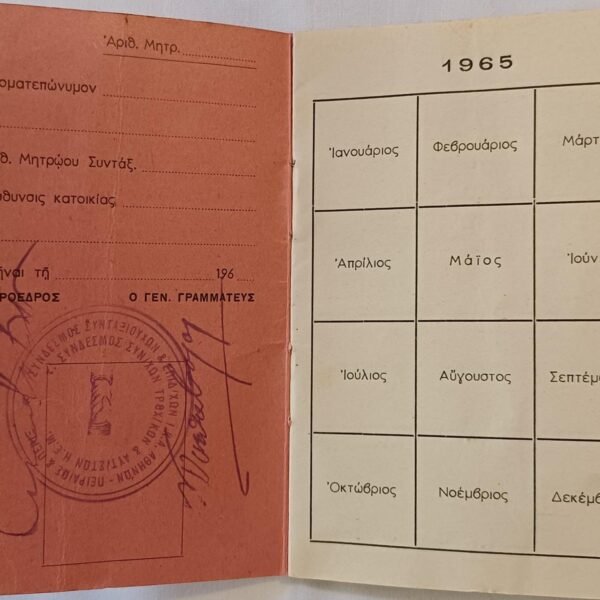 Ἀριθ. Μητρ.
οματεπώνυμον
θ. Μητρώου Συντάξ.
ύθυνσις κατοικίας
ῆναι τῇ 196
ΡΟΕΔΡΟΣ Ο ΓΕΝ. ΓΡΑΜΜΑΤΕΥΣ
ΣΥΝΔΕΣΜΟΣ ΣΥΝΤΑΞΙΟΥΧΩΝ &
ΑΘΗΝΩΝ - ΠΕΙΡΑΙΩΣ &
ΣΥΝΔΕΣΜΟΣ
1965
Ἰανουάριος Φεβρουάριος Μάρτ
Ἀπρίλιος Μάϊος Ἰούν
Ἰούλιος Αὔγουστος Σεπτέμ
Ὀκτώβριος Νοέμβριος Δεκέμβ